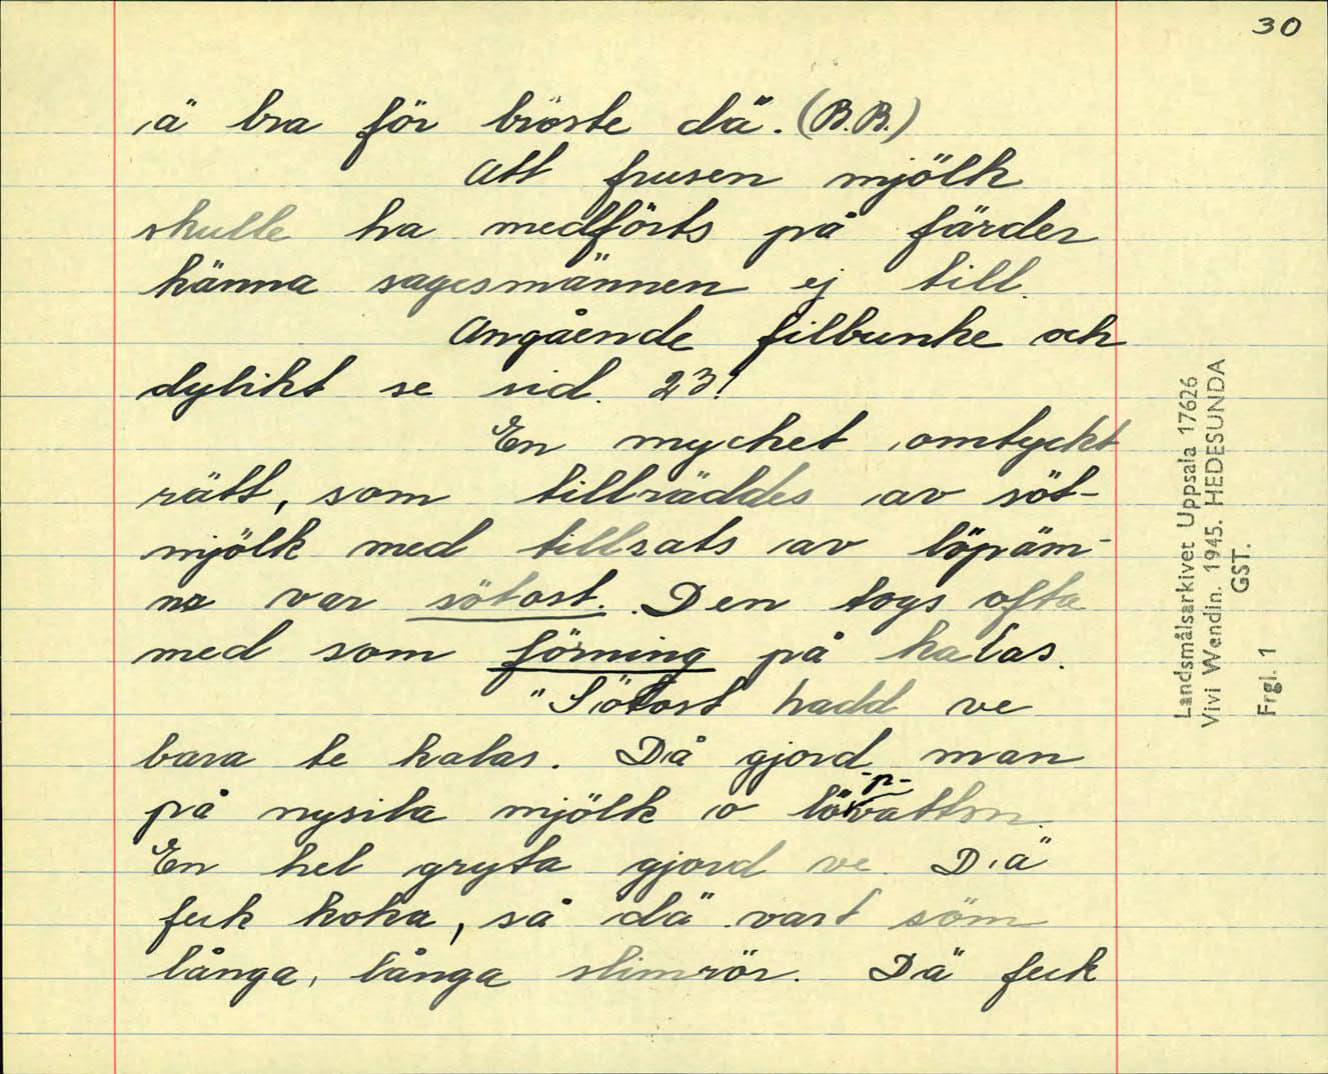 30
ä bra för bröste dä". (B.B.)
Att frusen mjölk
skulle ha medförts på färder
känna sagesmännen ej till.
Angående filbunke och
dylikt se sid. 23!
En mycket omtyckt
rätt, som tillräddes av söt-
mjölk med tillsats av löpäm-
ne var sötost. Den togs ofta
med som förning på kalas.
"Sötost hadd ve
bara te kalas. Då gjord man
på nysila mjölk o lö-p-vattn.
En hel gryta gjord ve. Dä
feck koka, så dä vart söm
långa, långa slimrör. Dä feck
Landsmålsarkivet Uppsala 17626
Vivi Wendin. 1945. HEDESUNDA
GST.
Frgl. 1